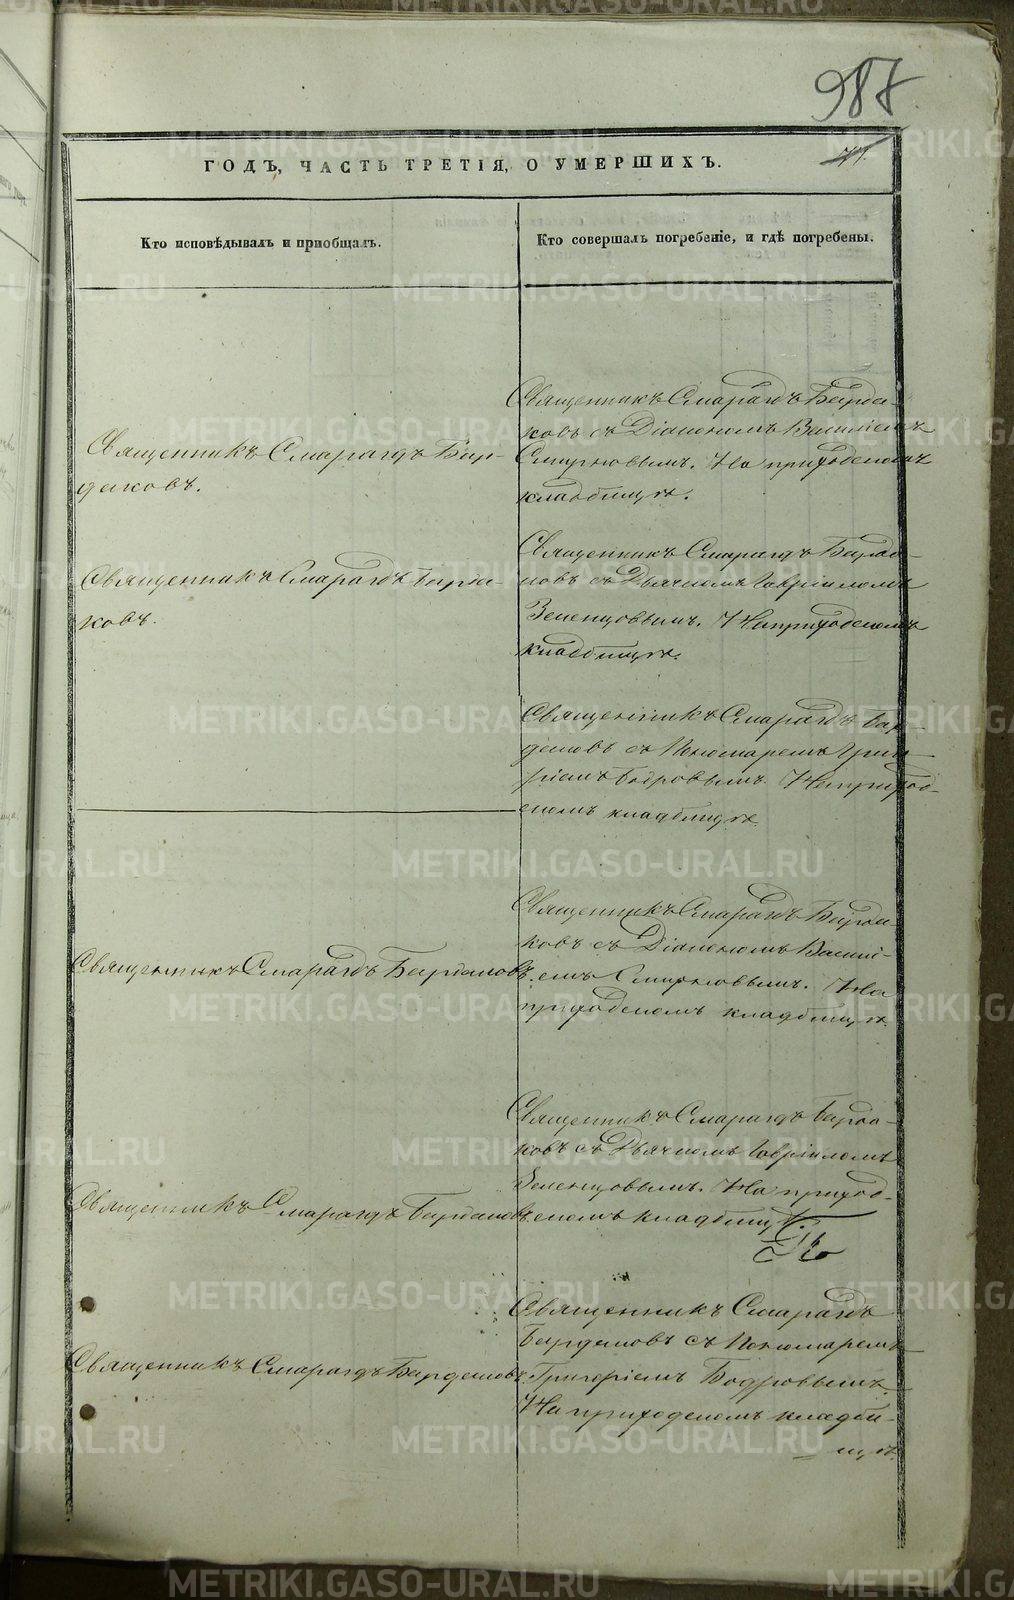 987
71.
ГОДЪ, ЧАСТЬ ТРЕТІЯ, О УМЕРШИХЪ.
Кто исповѣдывалъ и пріобщалъ.
Кто совершалъ погребеніе, и гдѣ погребены.
Священникъ Смарагдъ Бар-
даковъ.
Священникъ Смарагдъ Барда-
ковъ съ Діакономъ Василіемъ
Смирновымъ. На приходскомъ
кладбищѣ.
Священникъ Смарагдъ Барда-
ковъ.
Священникъ Смарагдъ Барда-
ковъ съ Дьячкомъ Гавріиломъ
Зеленцовымъ. На приходскомъ
кладбищѣ.
Священникъ Смарагдъ Бар-
даковъ съ Пономаремъ Григо-
ріемъ Бодровымъ. На приход-
скомъ кладбищѣ.
Священникъ Смарагдъ Бардаковъ.
Священникъ Смарагдъ Барда-
ковъ съ Діакономъ Васи-
емъ Смирновымъ. На
приходскомъ кладбищѣ.
Священникъ Смарагдъ Бардаковъ
Священникъ Смарагдъ Барда-
ковъ съ Дьячкомъ Гавріиломъ
Зеленцовымъ. На приход-
скомъ кладбищѣ.
Священникъ Смарагдъ Бардаковъ.
Священникъ Смарагдъ
Бардаковъ съ Пономаремъ
Григоріемъ Бодровымъ.
На приходскомъ кладби-
щѣ.
METRIKI.GASO-URAL.RU